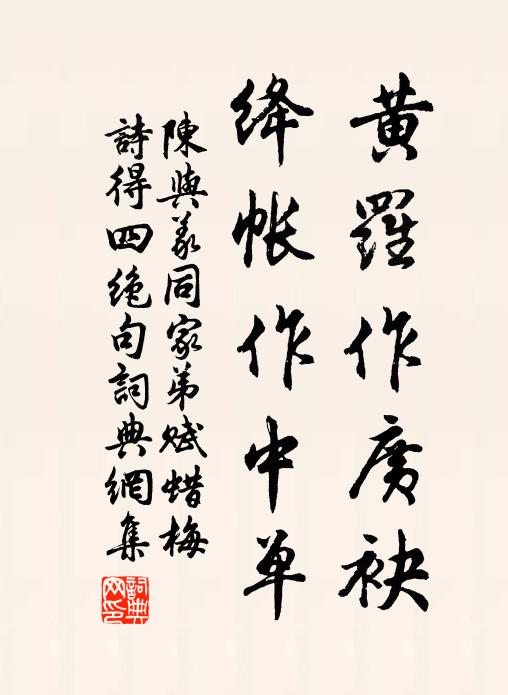 黄羅作廣袂
绛帐作中单
陳與義同家弟賦蜡梅
詩得四絶句詞典網集
詞典网印